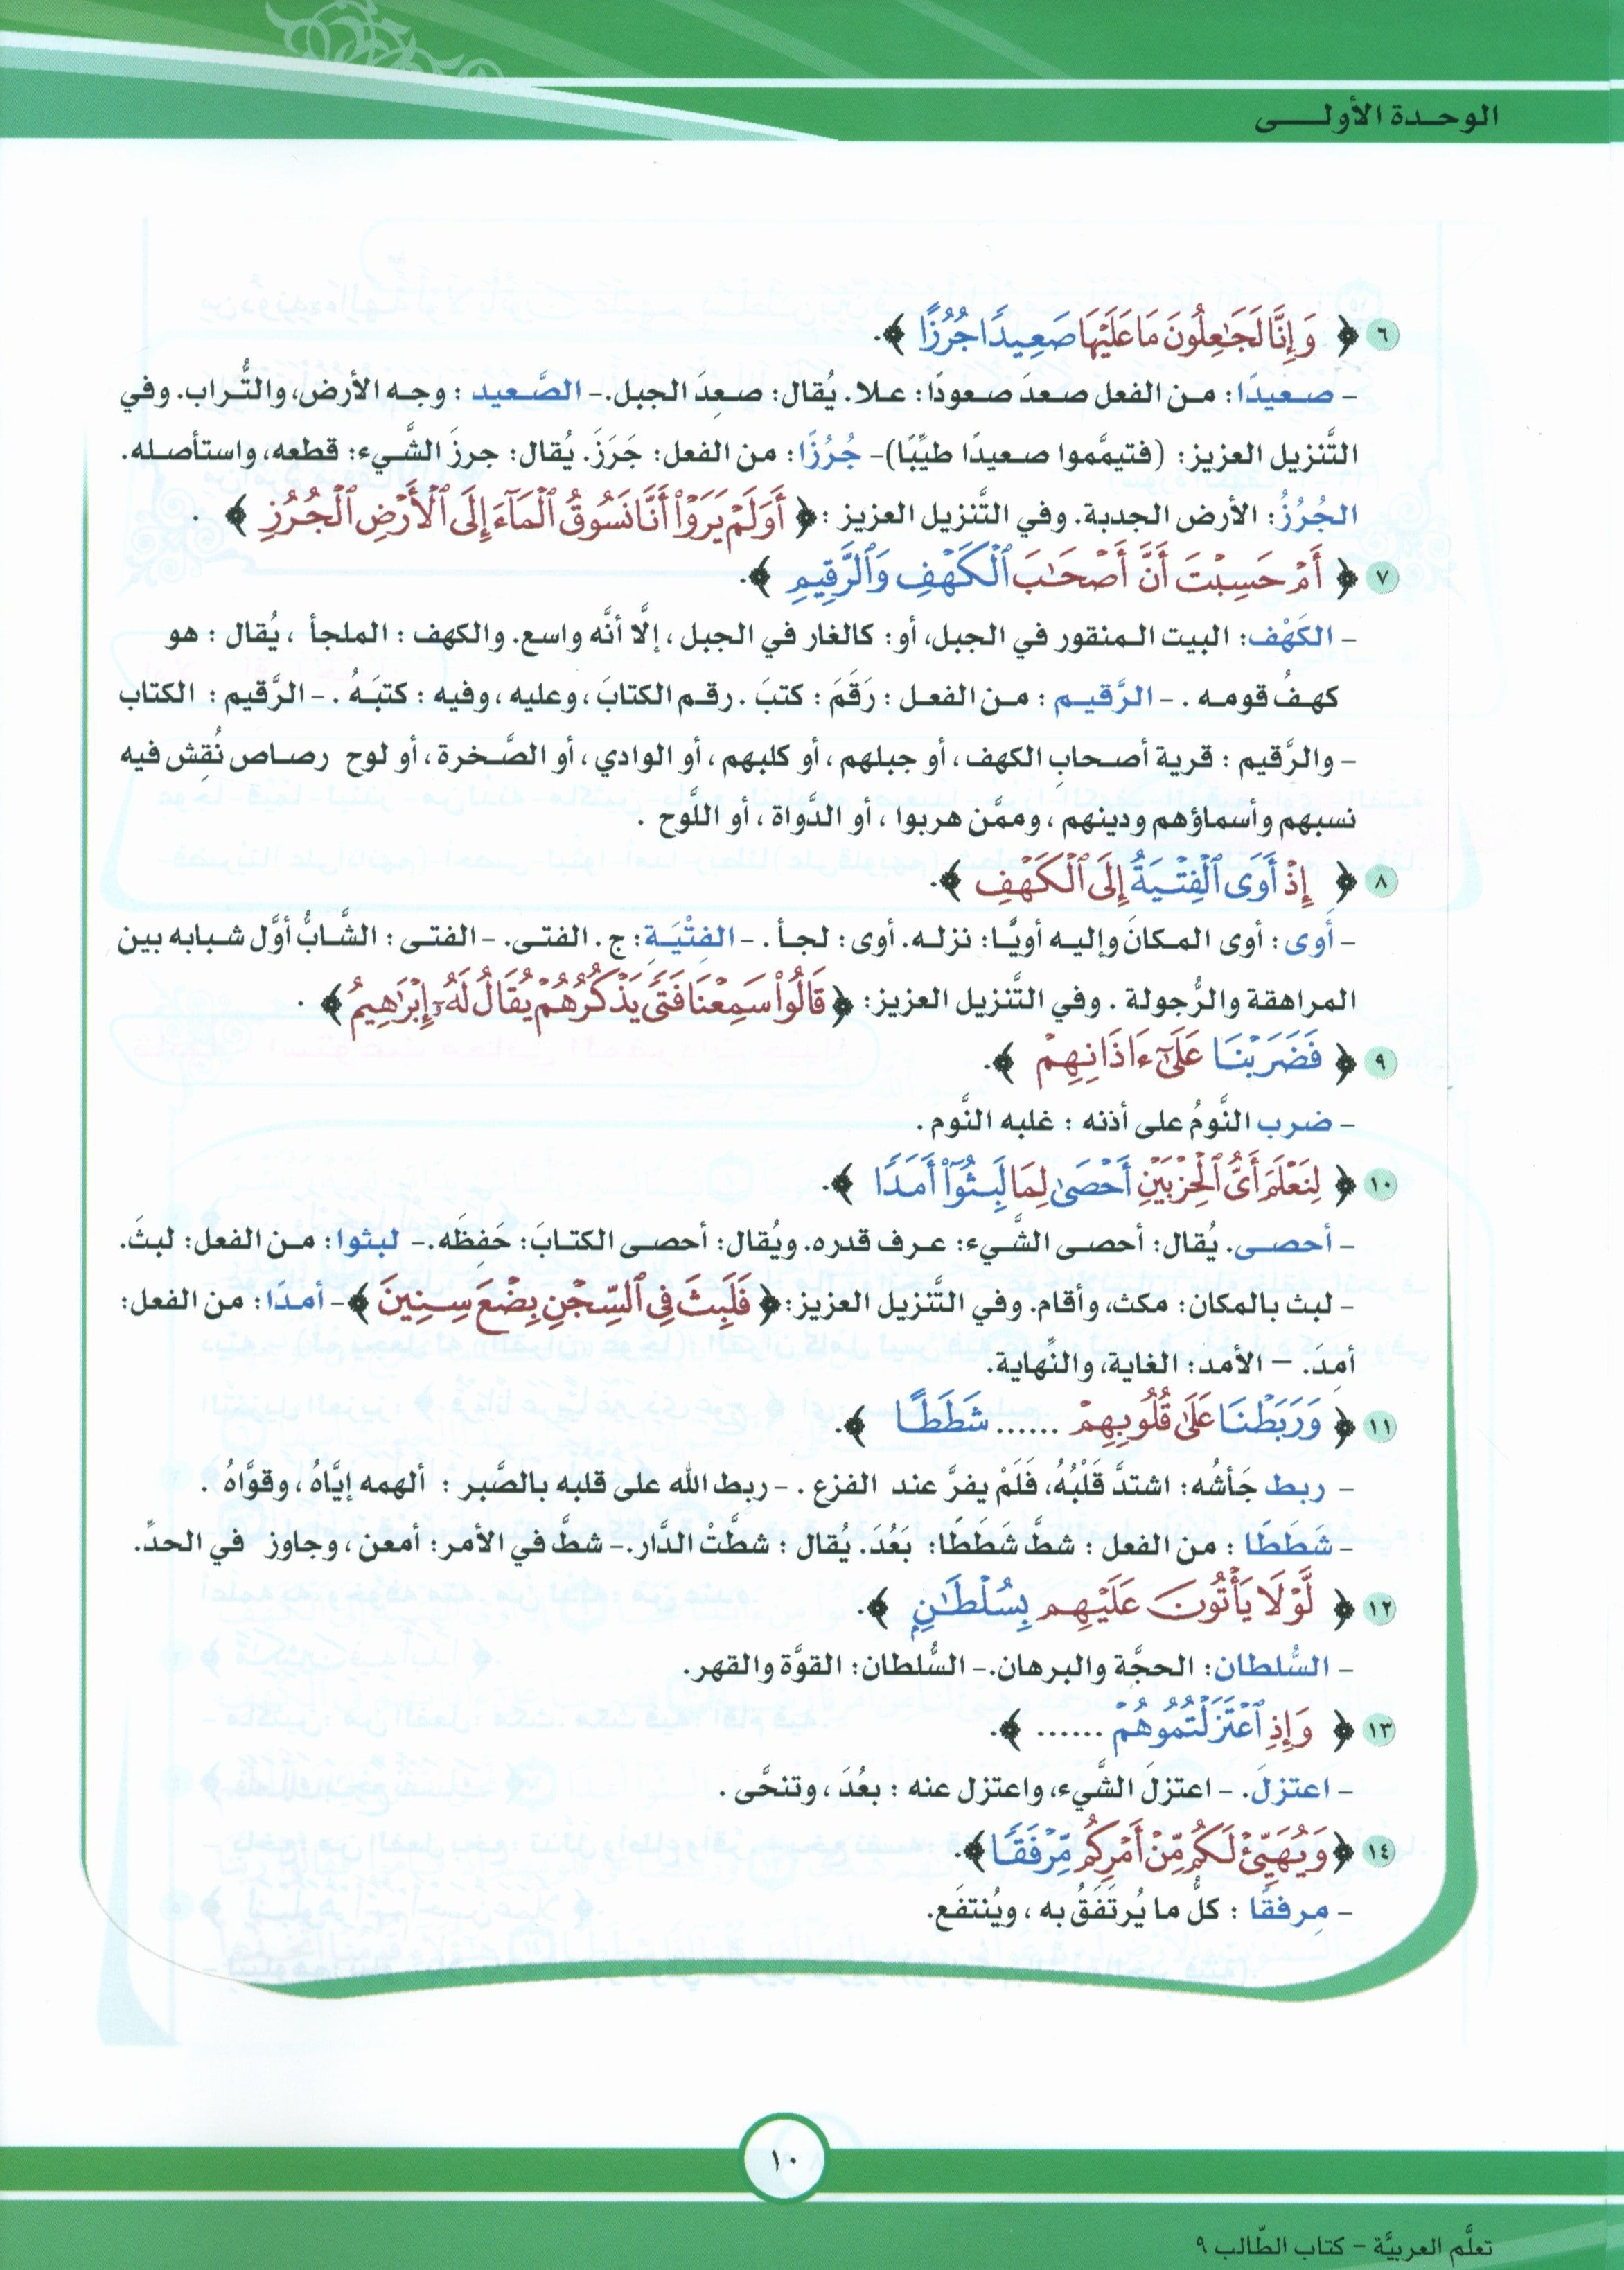 الوحدة الأولى
٦ ﴿ وَإِنَّا لَجَاعِلُونَ مَا عَلَيْهَا صَعِيدًا جُرُزًا ﴾.
– صعيدًا: من الفعل صعدَ صعودًا: علا. يُقال: صعِدَ الجبل.– الصَّعيد : وجه الأرض، والتُّراب. وفي
التَّنزيل العزيز: (فتيمَّموا صعيدًا طيِّبًا)– جُرُزًا: من الفعل: جَرَزَ. يُقال: جرزَ الشَّيء: قطعه، واستأصله.
الجُرُزُ: الأرض الجدبة. وفي التَّنزيل العزيز :﴿ أَوَلَمْ يَرَوْا۟ أَنَّا نَسُوقُ ٱلْمَآءَ إِلَى ٱلْأَرْضِ ٱلْجُرُزِ ﴾ .
٧ ﴿ أَمْ حَسِبْتَ أَنَّ أَصْحَـٰبَ ٱلْكَهْفِ وَٱلرَّقِيمِ ﴾.
– الكَهْف: البيت المنقور في الجبل، أو: كالغار في الجبل ، إلَّا أنَّه واسع. والكهف : الملجأ ، يُقال : هو
كهفُ قومه . – الرَّقيم : من الفعل : رَقَمَ : كتبَ . رقم الكتابَ ، وعليه ، وفيه : كتبَهُ . – الرَّقيم : الكتاب
– والرَّقيم : قرية أصحابِ الكهف ، أو جبلهم ، أو كلبهم ، أو الوادي ، أو الصَّخرة ، أو لوح رصاص نُقِش فيه
نسبهم وأسماؤهم ودينهم ، وممَّن هربوا ، أو الدَّواة ، أو اللَّوح .
٨ ﴿ إِذْ أَوَى ٱلْفِتْيَةُ إِلَى ٱلْكَهْفِ ﴾.
– أَوى: أوى المكانَ وإليه أويًّا: نزله. أوى: لجأ . – الفِتْيَة: ج. الفتى. – الفتى : الشَّابُّ أوَّل شبابه بين
المراهقة والرُّجولة . وفي التَّنزيل العزيز: ﴿ قَالُوا۟ سَمِعْنَا فَتًى يَذْكُرُهُمْ يُقَالُ لَهُۥٓ إِبْرَٰهِيمُ ﴾ .
٩ ﴿ فَضَرَبْنَا عَلَىٰٓ ءَاذَانِهِمْ ﴾.
– ضرب النَّومُ على أذنه : غلبه النَّوم .
١٠ ﴿ لِنَعْلَمَ أَىُّ ٱلْحِزْبَيْنِ أَحْصَىٰ لِمَا لَبِثُوٓا۟ أَمَدًا ﴾.
– أحصى. يُقال: أحصى الشَّيء: عرف قدره. ويُقال: أحصى الكتابَ: حَفِظَه.– لبثوا: من الفعل: لبثَ.
– لبث بالمكان: مكث، وأقام. وفي التَّنزيل العزيز:﴿ فَلَبِثَ فِى ٱلسِّجْنِ بِضْعَ سِنِينَ ﴾– أمدًا: من الفعل:
أمِدَ. – الأمد: الغاية، والنِّهاية.
١١ ﴿ وَرَبَطْنَا عَلَىٰ قُلُوبِهِمْ ...... شَطَطًا ﴾.
– ربط جَأشُه: اشتدَّ قَلْبُهُ، فَلَمْ يفرَّ عند الفزع . – ربط الله على قلبه بالصَّبر : ألهمه إيَّاهُ ، وقوَّاهُ .
– شَطَطًا : من الفعل : شطَّ شَطَطًا: بَعُدَ. يُقال : شطَّتْ الدَّار.– شطَّ في الأمر: أمعن ، وجاوز في الحدِّ.
١٢ ﴿ لَّوْلَا يَأْتُونَ عَلَيْهِم بِسُلْطَـٰنٍ ﴾.
– السُّلطان: الحجَّة والبرهان.– السُّلطان: القوَّة والقهر.
١٣ ﴿ وَإِذِ ٱعْتَزَلْتُمُوهُمْ ...... ﴾.
– اعتزلَ. – اعتزلَ الشَّيء، واعتزل عنه : بعُدَ ، وتنحَّى .
١٤ ﴿ وَيُهَيِّئْ لَكُم مِّنْ أَمْرِكُم مِّرْفَقًا ﴾.
– مِرفقًا : كلُّ ما يُرتَفَقُ به ، ويُنتفَع.
١٠
تعلَّم العربيَّة – كتاب الطّالب ٩